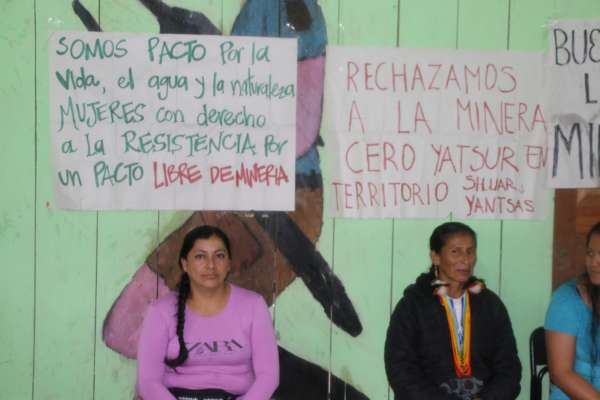 SOMOS PACTO POR la
Vida, el agua y la naturaleza
MUJERES con derecho
a la RESISTENCIA POR
un PACTO LIBRE DE MINERIA
RECHAZAMOS
A LA MINERA
CERO YATSUR EN
TERRITORIO SHUAR
YANTSAS
BUE
L
MIN
ZARA